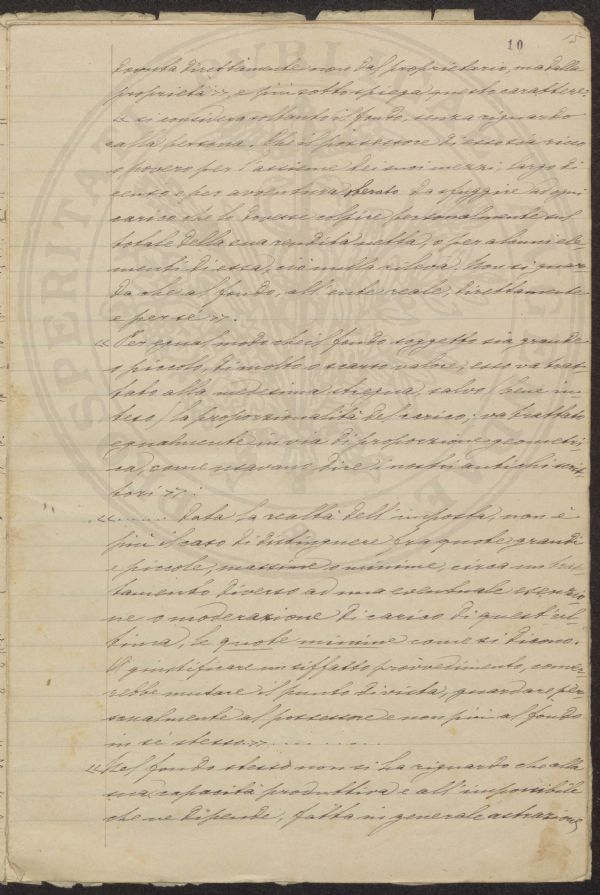 10
15
dovuta direttamente non dal proprietario, ma dalla
proprietà », e più sotto spiega questo carattere:
« si considera soltanto il fondo, senza riguardo
alla persona. Che il possessore di esso sia ricco
o povero per l'assieme dei suoi mezzi, largo di
censo o per avventura sfuggire ad ogni
carico che lo dovesse colpire personalmente sul
totale della sua rendita netta, o per alcuni ele-
menti di essa, ciò nulla rileva. Non si guar-
da che al fondo, all'ente reale, direttamente
e per sè ».
« Per egual modo che il fondo soggetto sia grande
o piccolo, di molto o scarso valore, esso va trat-
tato alla medesima stregua, salvo bene in-
teso la proporzionalità del carico; va trattato
egualmente in via di proporzione geometri-
ca, come usavano dire i nostri antichi scrit-
tori »:
«...... data la realtà dell'imposta, non è
più il caso di distinguere fra quote grandi
e piccole, massime o minime, circa un trat-
tamento diverso ad una eventuale esenzio-
ne o moderazione di carico di quest'ul-
tima, le quote minime come si dicono.
A giustificare un siffatto provvedimento, conver-
rebbe mutare il punto di vista, guardare per-
sonalmente al possessore e non più al fondo
in sè stesso » ..........
« Del fondo stesso non si ha riguardo che alla
sua capacità produttiva e all'imponibile
che ne dipende, fatta in generale astrazione